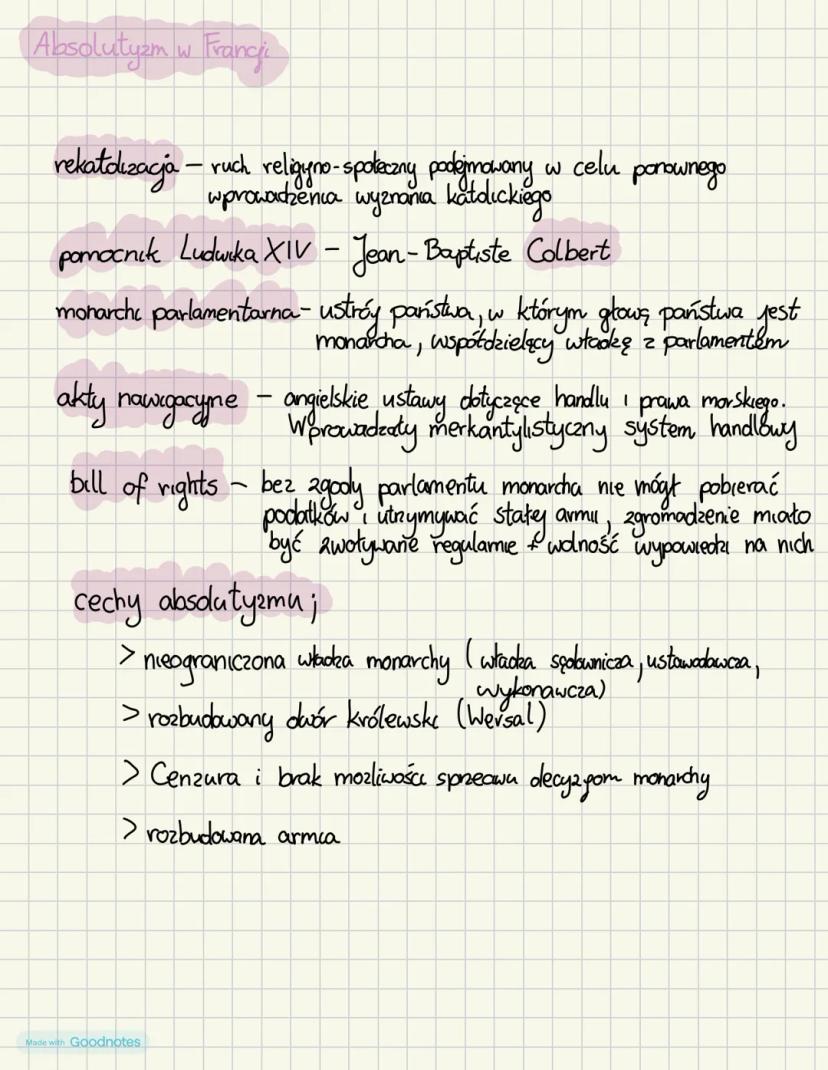 Absolutyzm w Francji
rekatolizacja – ruch religijno-społeczny podejmowany w celu ponownego
wprowadzenia wyznania katolickiego
pomocnik Ludwika XIV – Jean-Baptiste Colbert
monarchi parlamentarna – ustrój państwa, w którym głową państwa jest
monarcha, współdzielący władzę z parlamentem
akty nawigacyjne – angielskie ustawy dotyczące handlu i prawa morskiego.
Wprowadzały merkantylistyczny system handlowy
bill of rights – bez zgody parlamentu monarcha nie mógł pobierać
podatków i utrzymywać stałej armii, zgromadzenie miało
być zwoływane regularnie + wolność wypowiedzi na nich
cechy absolutyzmu;
> nieograniczona władza monarchy (władza sądownicza, ustawodawcza,
wykonawcza)
> rozbudowany dwór królewski (Wersal)
> Cenzura i brak możliwości sprzeciwu decyzjom monarchy
> rozbudowana armia
Made with Goodnotes